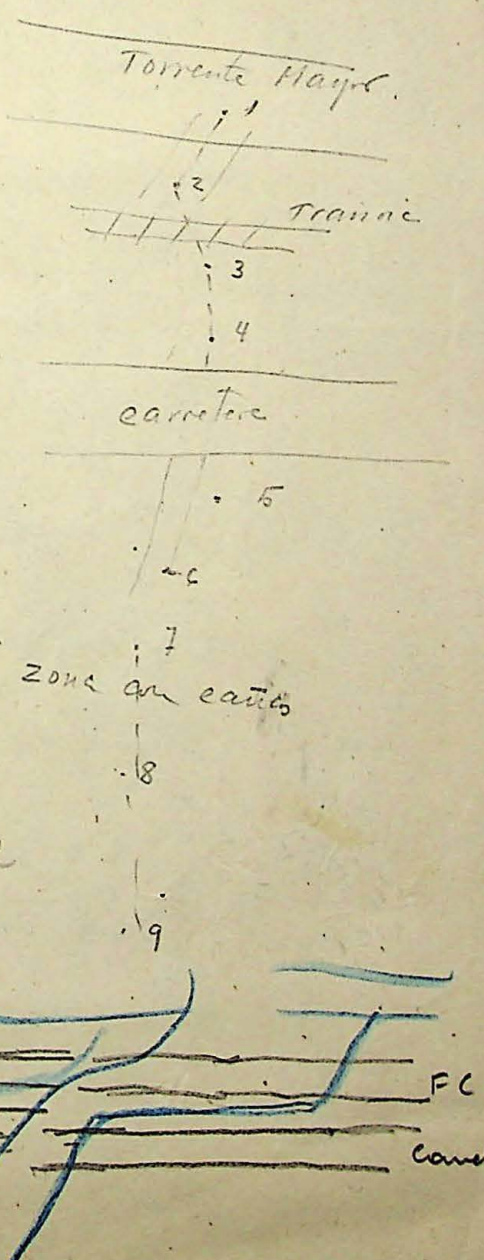 Torrente Mayor.
1
2
Tranvia
3
4
carretera
5
6
7
zona con cañas
8
9
FC